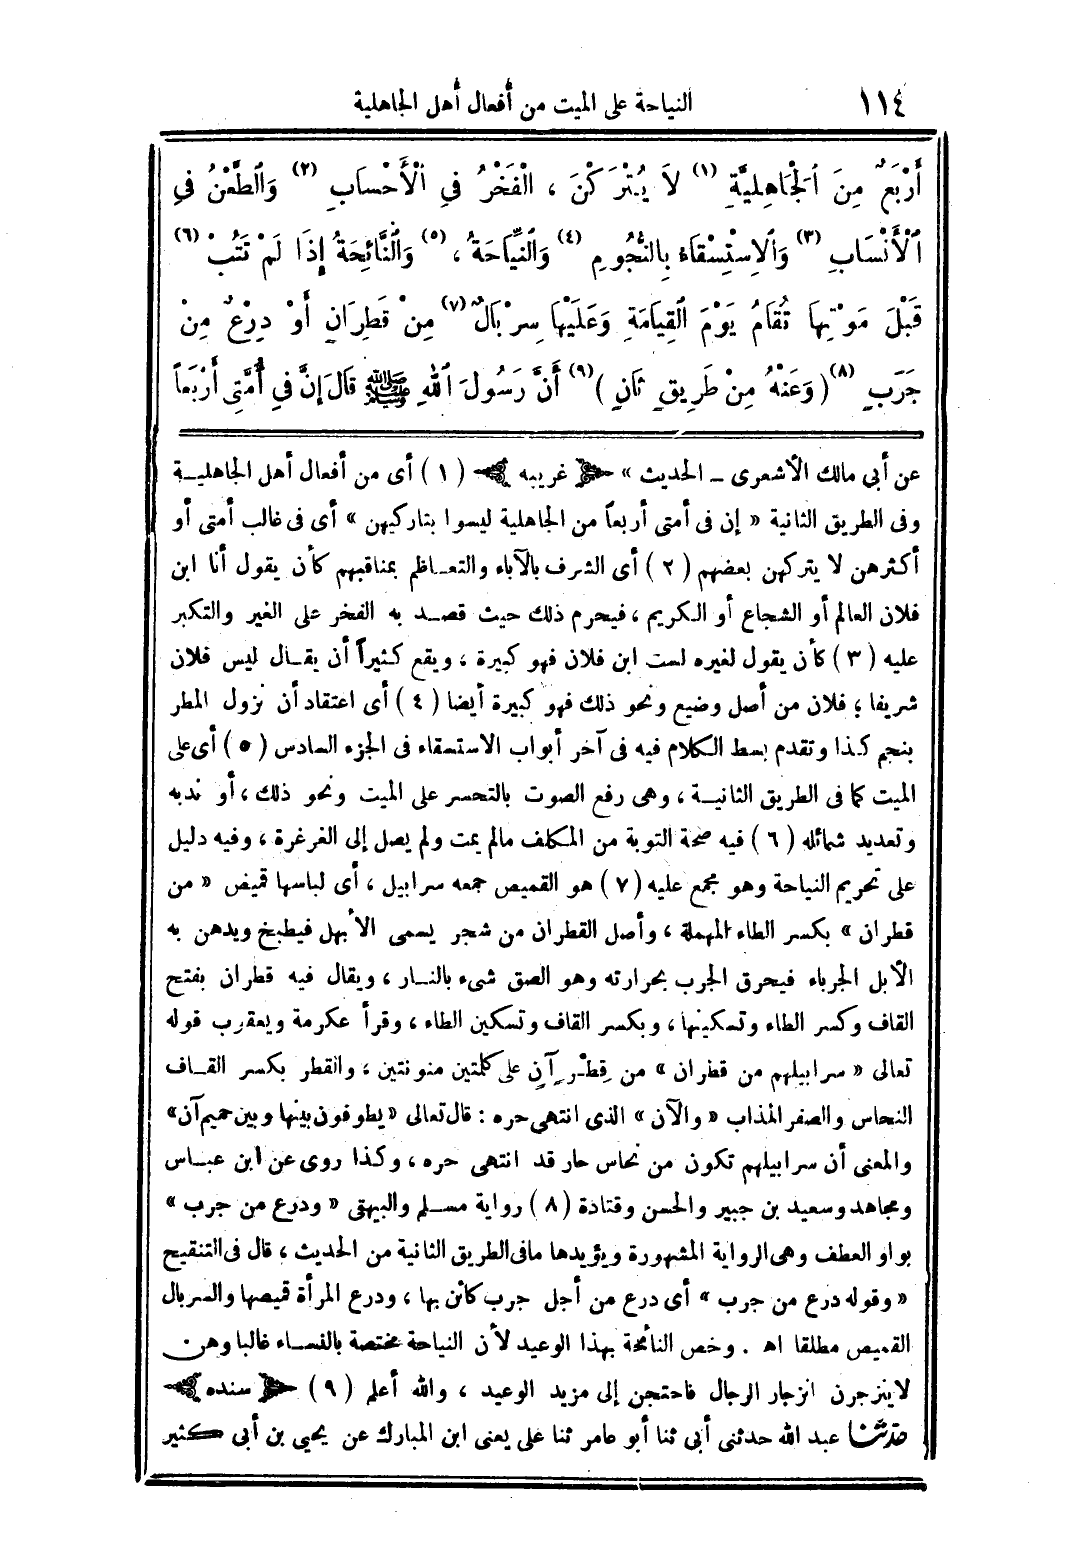 ١١٤ النياحة على الميت من أفعال أهل الجاهلية
أَرْبَعٌ مِنَ ٱلْجَاهِلِيَّةِ (١) لَا يُتْرَكْنَ ، الْفَخْرُ فِي ٱلْأَحْسَابِ (٢) وَٱلطَّعْنُ فِي
ٱلْأَنْسَابِ (٣) وَٱلِاسْتِسْقَاءُ بِالنُّجُومِ (٤) وَٱلنِّيَاحَةُ ، (٥) وَٱلنَّائِحَةُ إِذَا لَمْ تَتُبْ (٦)
قَبْلَ مَوْتِهَا تُقَامُ يَوْمَ ٱلْقِيَامَةِ وَعَلَيْهَا سِرْبَالٌ (٧) مِنْ قَطِرَانٍ أَوْ دِرْعٌ مِنْ
جَرَبٍ (٨) ( وَعَنْهُ مِنْ طَرِيقٍ ثَانٍ ) (٩) أَنَّ رَسُولَ ٱللهِ ﷺ قَالَ إِنَّ فِي أُمَّتِي أَرْبَعاً
عن أبي مالك الأشعرى ــ الحديث » ﴿ غريبه ﴾ (١) أى من أفعال أهل الجاهليـة
وفى الطريق الثانية « إن فى أمتى أربعاً من الجاهلية ليسوا بتاركيهن » أى فى غالب أمتى أو
أكثرهن لا يتركهن بعضهم (٢) أى الشرف بالآباء والتعـاظم بمناقبهم كأن يقول أنا ابن
فلان العالم أو الشجاع أو الـكريم ، فيحرم ذلك حيث قصـد به الفخر على الغير والتكبر
عليه (٣) كأن يقول لغيره لست ابن فلان فهو كبيرة ، ويقع كثيراً أن يقـال ليس فلان
شريفا ؛ فلان من أصل وضيع ونحو ذلك فهو كبيرة أيضا (٤) أى اعتقاد أن نزول المطر
بنجم كذا وتقدم بسط الـكلام فيه فى آخر أبواب الاستسقاء فى الجزء السادس (٥) أى على
الميت كما فى الطريق الثانيـة ، وهى رفع الصوت بالتحسر على الميت ونحو ذلك ، أو ندبه
وتعديد شمائله (٦) فيه صحة التوبة من المكلف مالم يمت ولم يصل إلى الغرغرة ، وفيه دليل
على تحريم النياحة وهو مجمع عليه (٧) هو القميص جمعه سرابيل ، أى لباسها قميص « من
قطران » بكسر الطاء المهملة ، وأصل القطران من شجر يسمى الأبهل فيطبخ ويدهن به
الأبل الجرباء فيحرق الجرب بحرارته وهو الصق شىء بالنـار ، ويقال فيه قطران بفتح
القاف وكسر الطاء وتسكينها ، وبكسر القاف وتسكين الطاء ، وقرأ عكرمة ويعقرب قوله
تعالى « سرابيلهم من قطران » من قِطْرٍ آنٍ على كلمتين منونتين ، والقطر بكسر القـاف
النحاس والصفر المذاب « والآن » الذى انتهى حره : قال تعالى « يطوفون بينها وبين حميم آن »
والمعنى أن سرابيلهم تكون من نحاس حار قد انتهى حره ، وكذا روى عن ابن عبـاس
ومجاهد وسعيد بن جبير والحسن وقتادة (٨) رواية مسلم والبيهقى « ودرع من جرب »
بواو العطف وهى الرواية المشهورة ويؤيدها مافى الطريق الثانية من الحديث ، قال فى التنقيح
« وقوله درع من جرب » أى درع من أجل جرب كائن بها ، ودرع المرأة قميصها والسربال
القميص مطلقا اهـ . وخص النائحة بهذا الوعيد لأن النياحة مختصة بالنسـاء غالبا وهن
لا ينزجرن انزجار الرجال فاحتجن إلى مزيد الوعيد ، والله أعلم (٩) ﴿ سنده ﴾
حدّثنا عبد الله حدثنى أبي ثنا أبو عامر ثنا على يعنى ابن المبارك عن يحيى بن أبى كثير